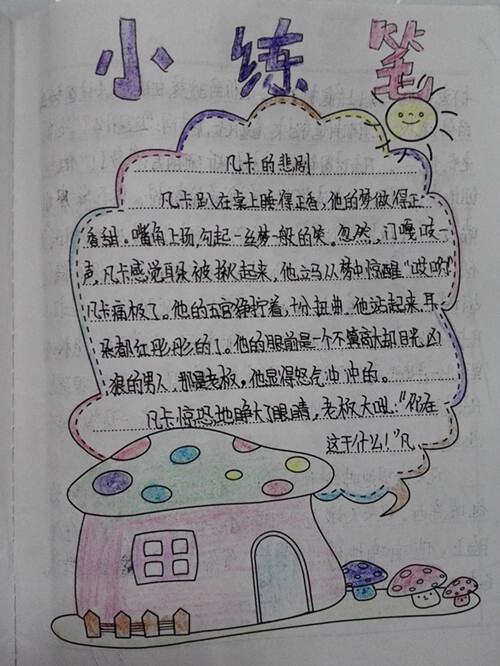 小练笔
凡卡的悲剧
凡卡趴在桌上睡得正香，他的梦做得正
香甜。嘴角上扬，勾起一丝梦一般的笑。忽然，门嘎吱一
声，凡卡感觉耳朵被揪起来，他立马从梦中惊醒“哎哟！”
凡卡痛极了。他的五官狰狞着，十分扭曲，他站起来，耳
朵都红彤彤的了。他的眼前是一个不算高大却目光凶
狠的男人，那是老板，他显得怒气冲冲的。
凡卡惊恐地睁大了眼睛，老板大叫：“你在
这干什么！”凡